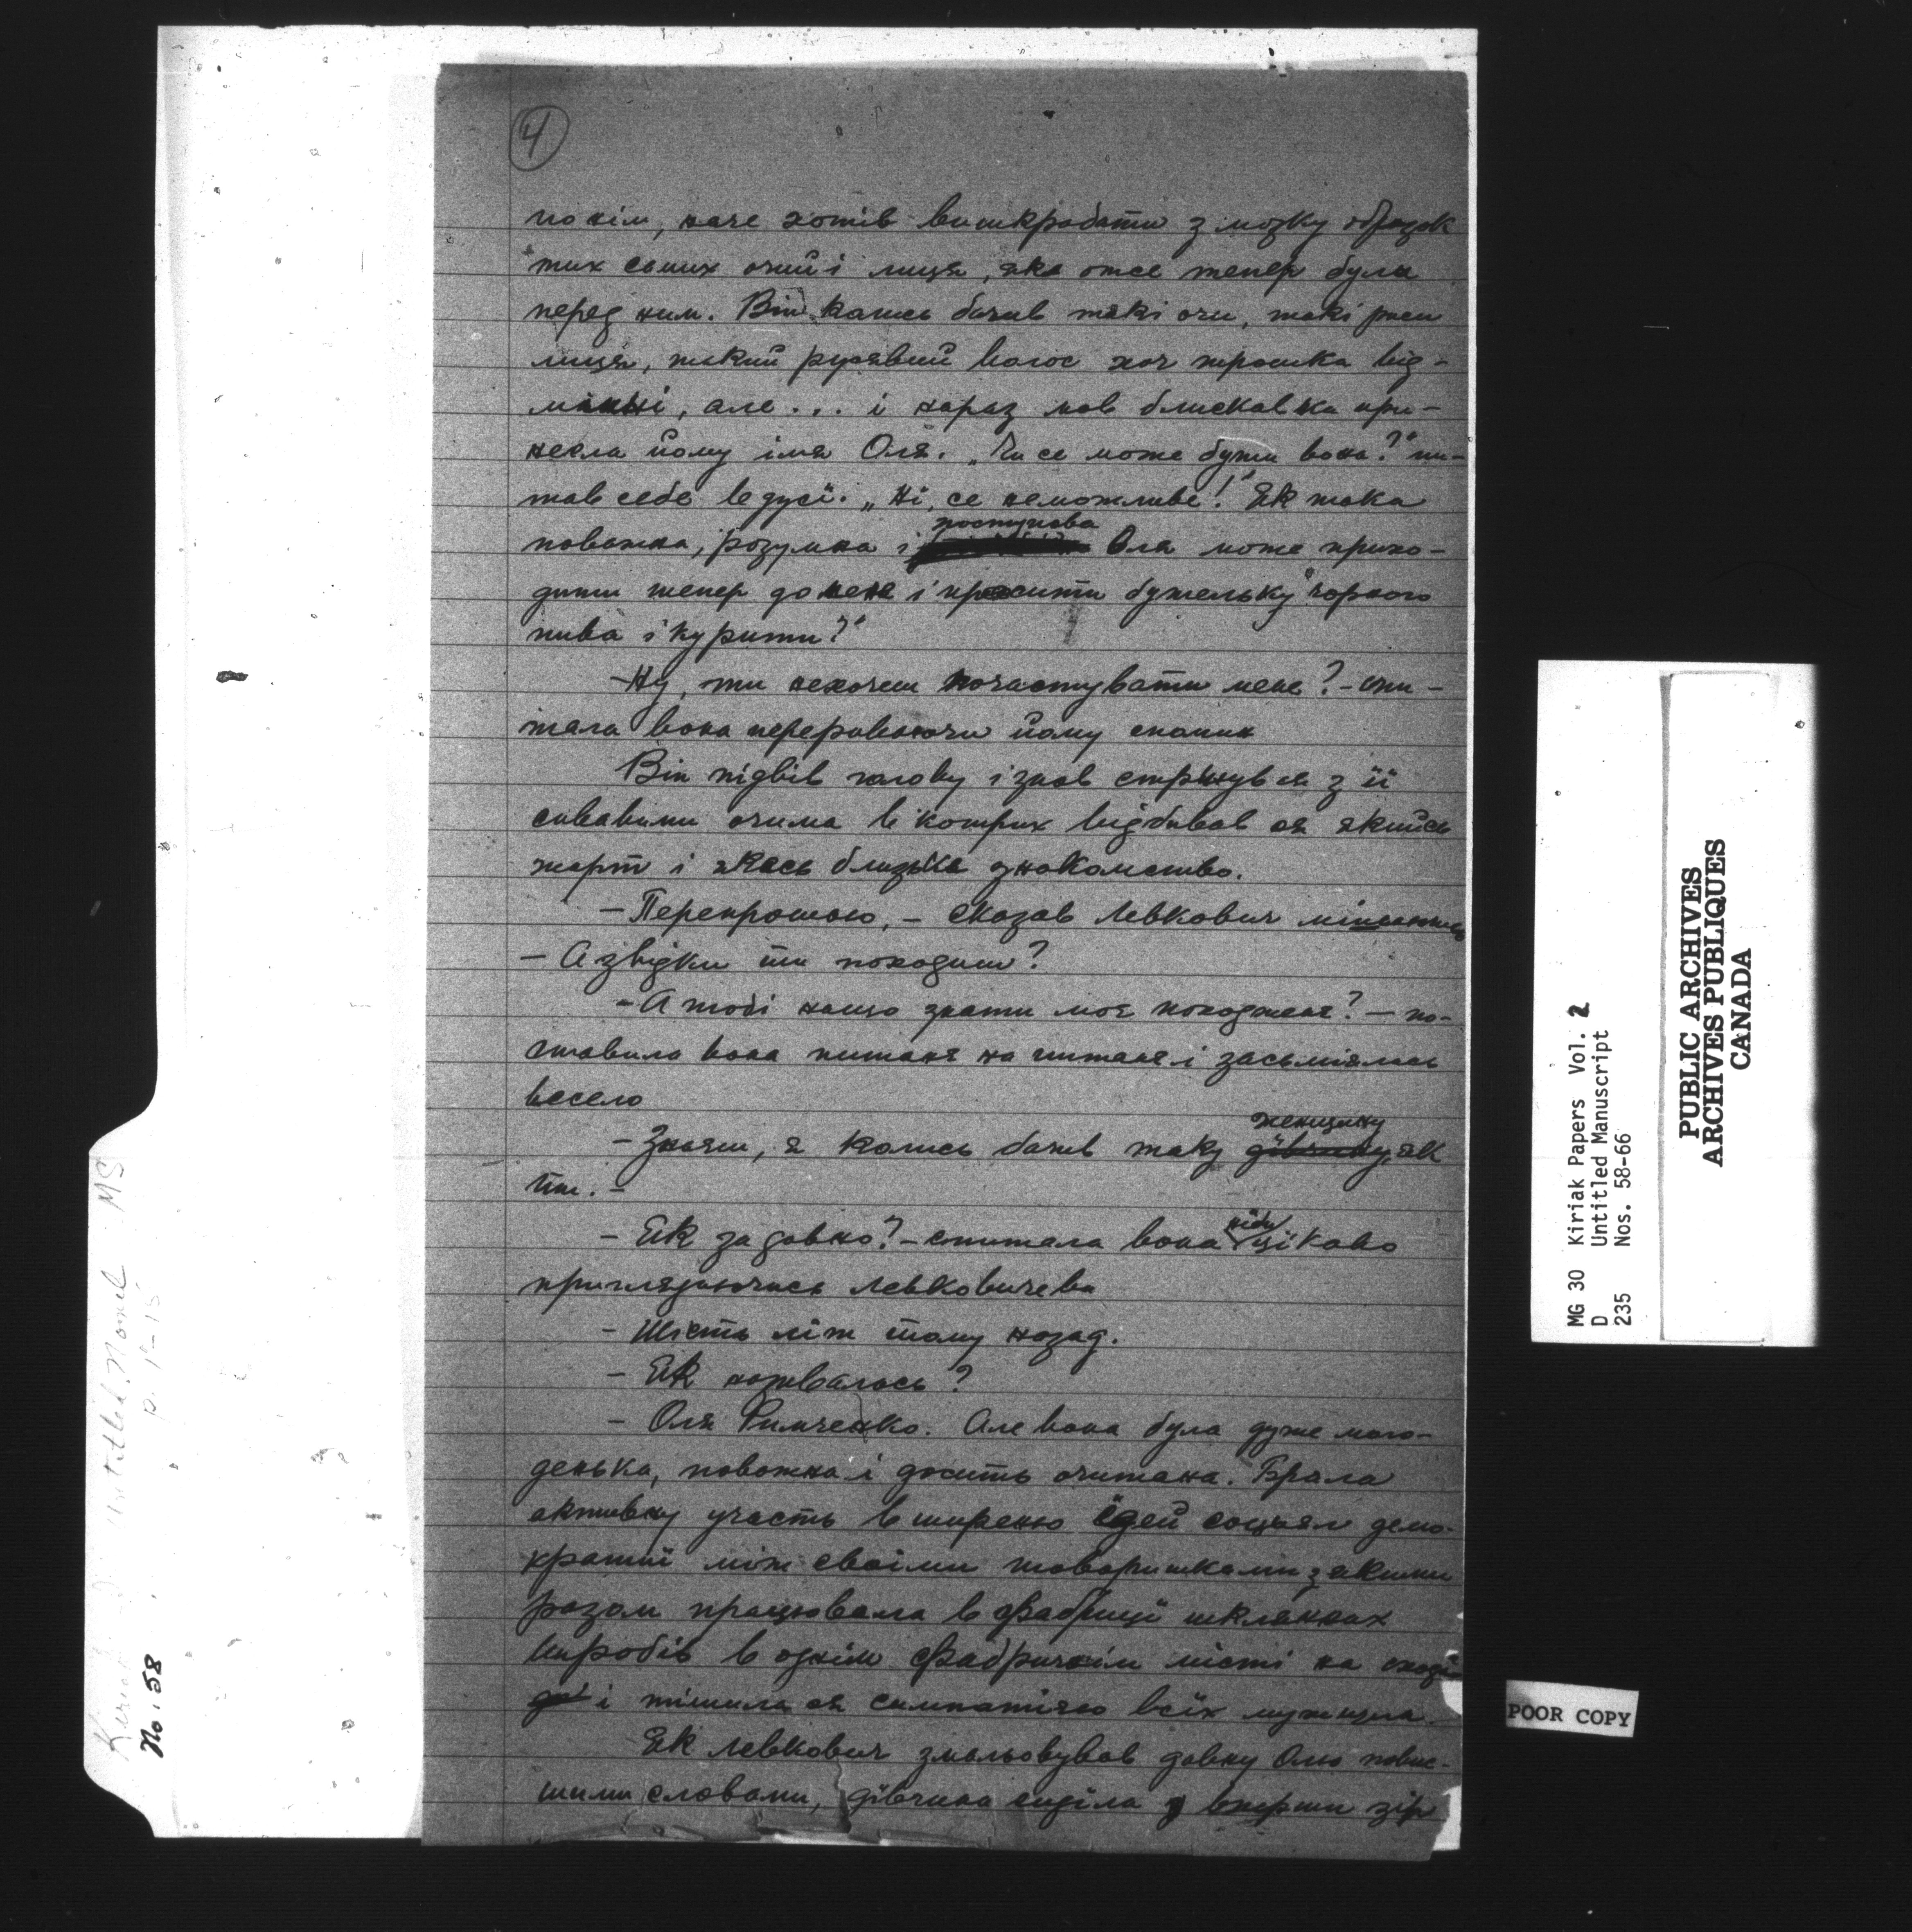 4
по нїм, наче хотїв вишкробати з мозку образок
тих сьних очий і лиця, яке отсе тепер було
перед ним. Він колись бачив такі очи, такі риси
лиця, такий русявий волос хоч трошка від-
мінні, але ... і нараз мов блискавка при-
несла йому імя Оля. „Чи се може бути вона?" пи-
тав себе в дусї. „Нї, се неможливе! Як така
поважна, розумна і поступова Оля може прихо-
дити тепер до мене і просити бутельку чорного
пива і курити?"
- Ну, ти нехочеш почастувати мене? - спи-
тала вона перериваючи йому спомин
Він підвів голову і знов стрінув ся з її
сивавими очима в котрих відбивав ся якийсь
жарт і якась близька знакомство.
- Перепрошаю, - сказав Левкович
- А звідки ти походиш?
- А тобі нащо знати моє походженя? - по-
ставила вона питанє на питанє і засьміялась
весело
- Знаєш, я колись бачив таку дівчину, як
женщину
ти. -
- Як за давно? - спитала вона ніби цїкаво
приглядаючись Левковичеви
- Шість лїт тому назад.
- Як називалась?
- Оля Римченко. Але вона була дуже моло-
денька, поважна і досить очитана. Брала
активну участь в ширеню ідей социял демо-
кратиї між своїми товаришками з якими
разом працювала в фабрицї шкляних
виробів в однім фабричнім місті на сході
і тішила ся симпатиєю всїх мужчин.
Як Левкович змальовував давну Олю повис-
шими словами, дївчина сидїла вперши зір
Kiriak Untitled Novel MS
p. 1-15
No. 58
MG 30 Kiriak Papers Vol. 2
D Untitled Manuscript
235 Nos. 58-66
PUBLIC ARCHIVES
ARCHIVES PUBLIQUES
CANADA
POOR COPY